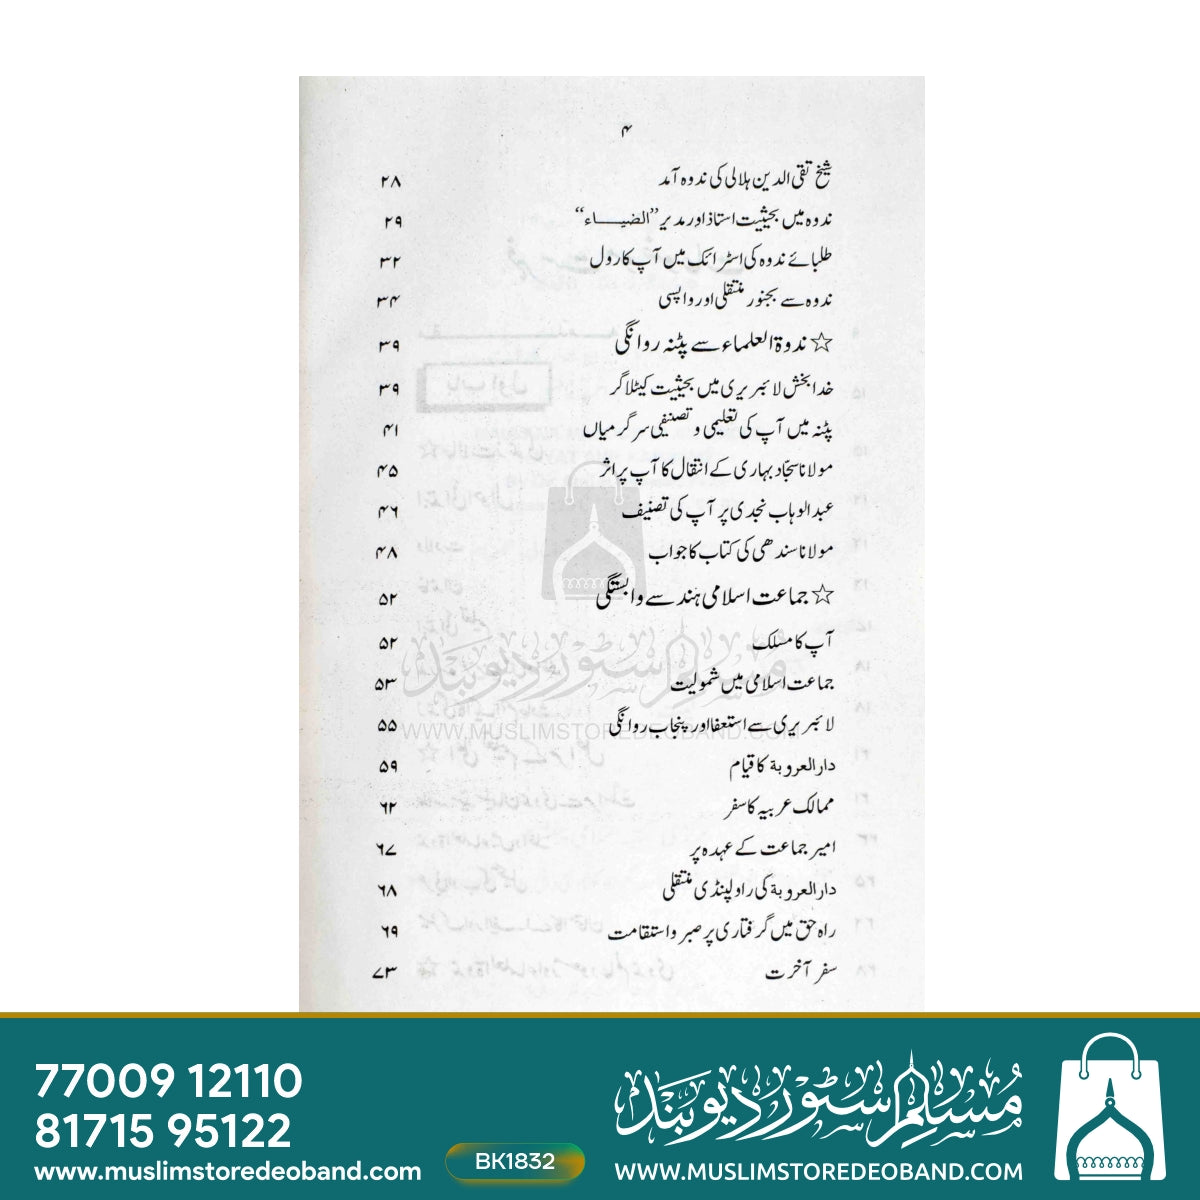 ۴
شیخ تقی الدین ہلالی کی ندوہ آمد ۲۸
ندوہ میں بحیثیت استاذ اور مدیر ”الضیاء“ ۲۹
طلبائے ندوہ کی اسٹرائک میں آپ کا رول ۳۲
ندوہ سے بجنور منتقلی اور واپسی ۳۴
☆ ندوۃ العلماء سے پٹنہ روانگی ۳۹
خدا بخش لائبریری میں بحیثیت کیٹلاگر ۳۹
پٹنہ میں آپ کی تعلیمی و تصنیفی سرگرمیاں ۴۱
مولانا سجّاد بہاری کے انتقال کا آپ پر اثر ۴۵
عبد الوہاب نجدی پر آپ کی تصنیف ۴۶
مولانا سندھی کی کتاب کا جواب ۴۸
☆ جماعت اسلامی ہند سے وابستگی ۵۲
آپ کا مسلک ۵۲
جماعت اسلامی میں شمولیت ۵۳
لائبریری سے استعفا اور پنجاب روانگی ۵۵
دار العروبة کا قیام ۵۹
ممالک عربیہ کا سفر ۶۲
امیر جماعت کے عہدہ پر ۶۷
دار العروبة کی راولپنڈی منتقلی ۶۸
راہ حق میں گرفتاری پر صبر و استقامت ۶۹
سفر آخرت ۷۳
مسلم سٹور دیوبند
WWW.MUSLIMSTOREDEOBAND.COM
77009 12110
81715 95122
www.muslimstoredeoband.com
BK1832
مسلم سٹور دیوبند
WWW.MUSLIMSTOREDEOBAND.COM